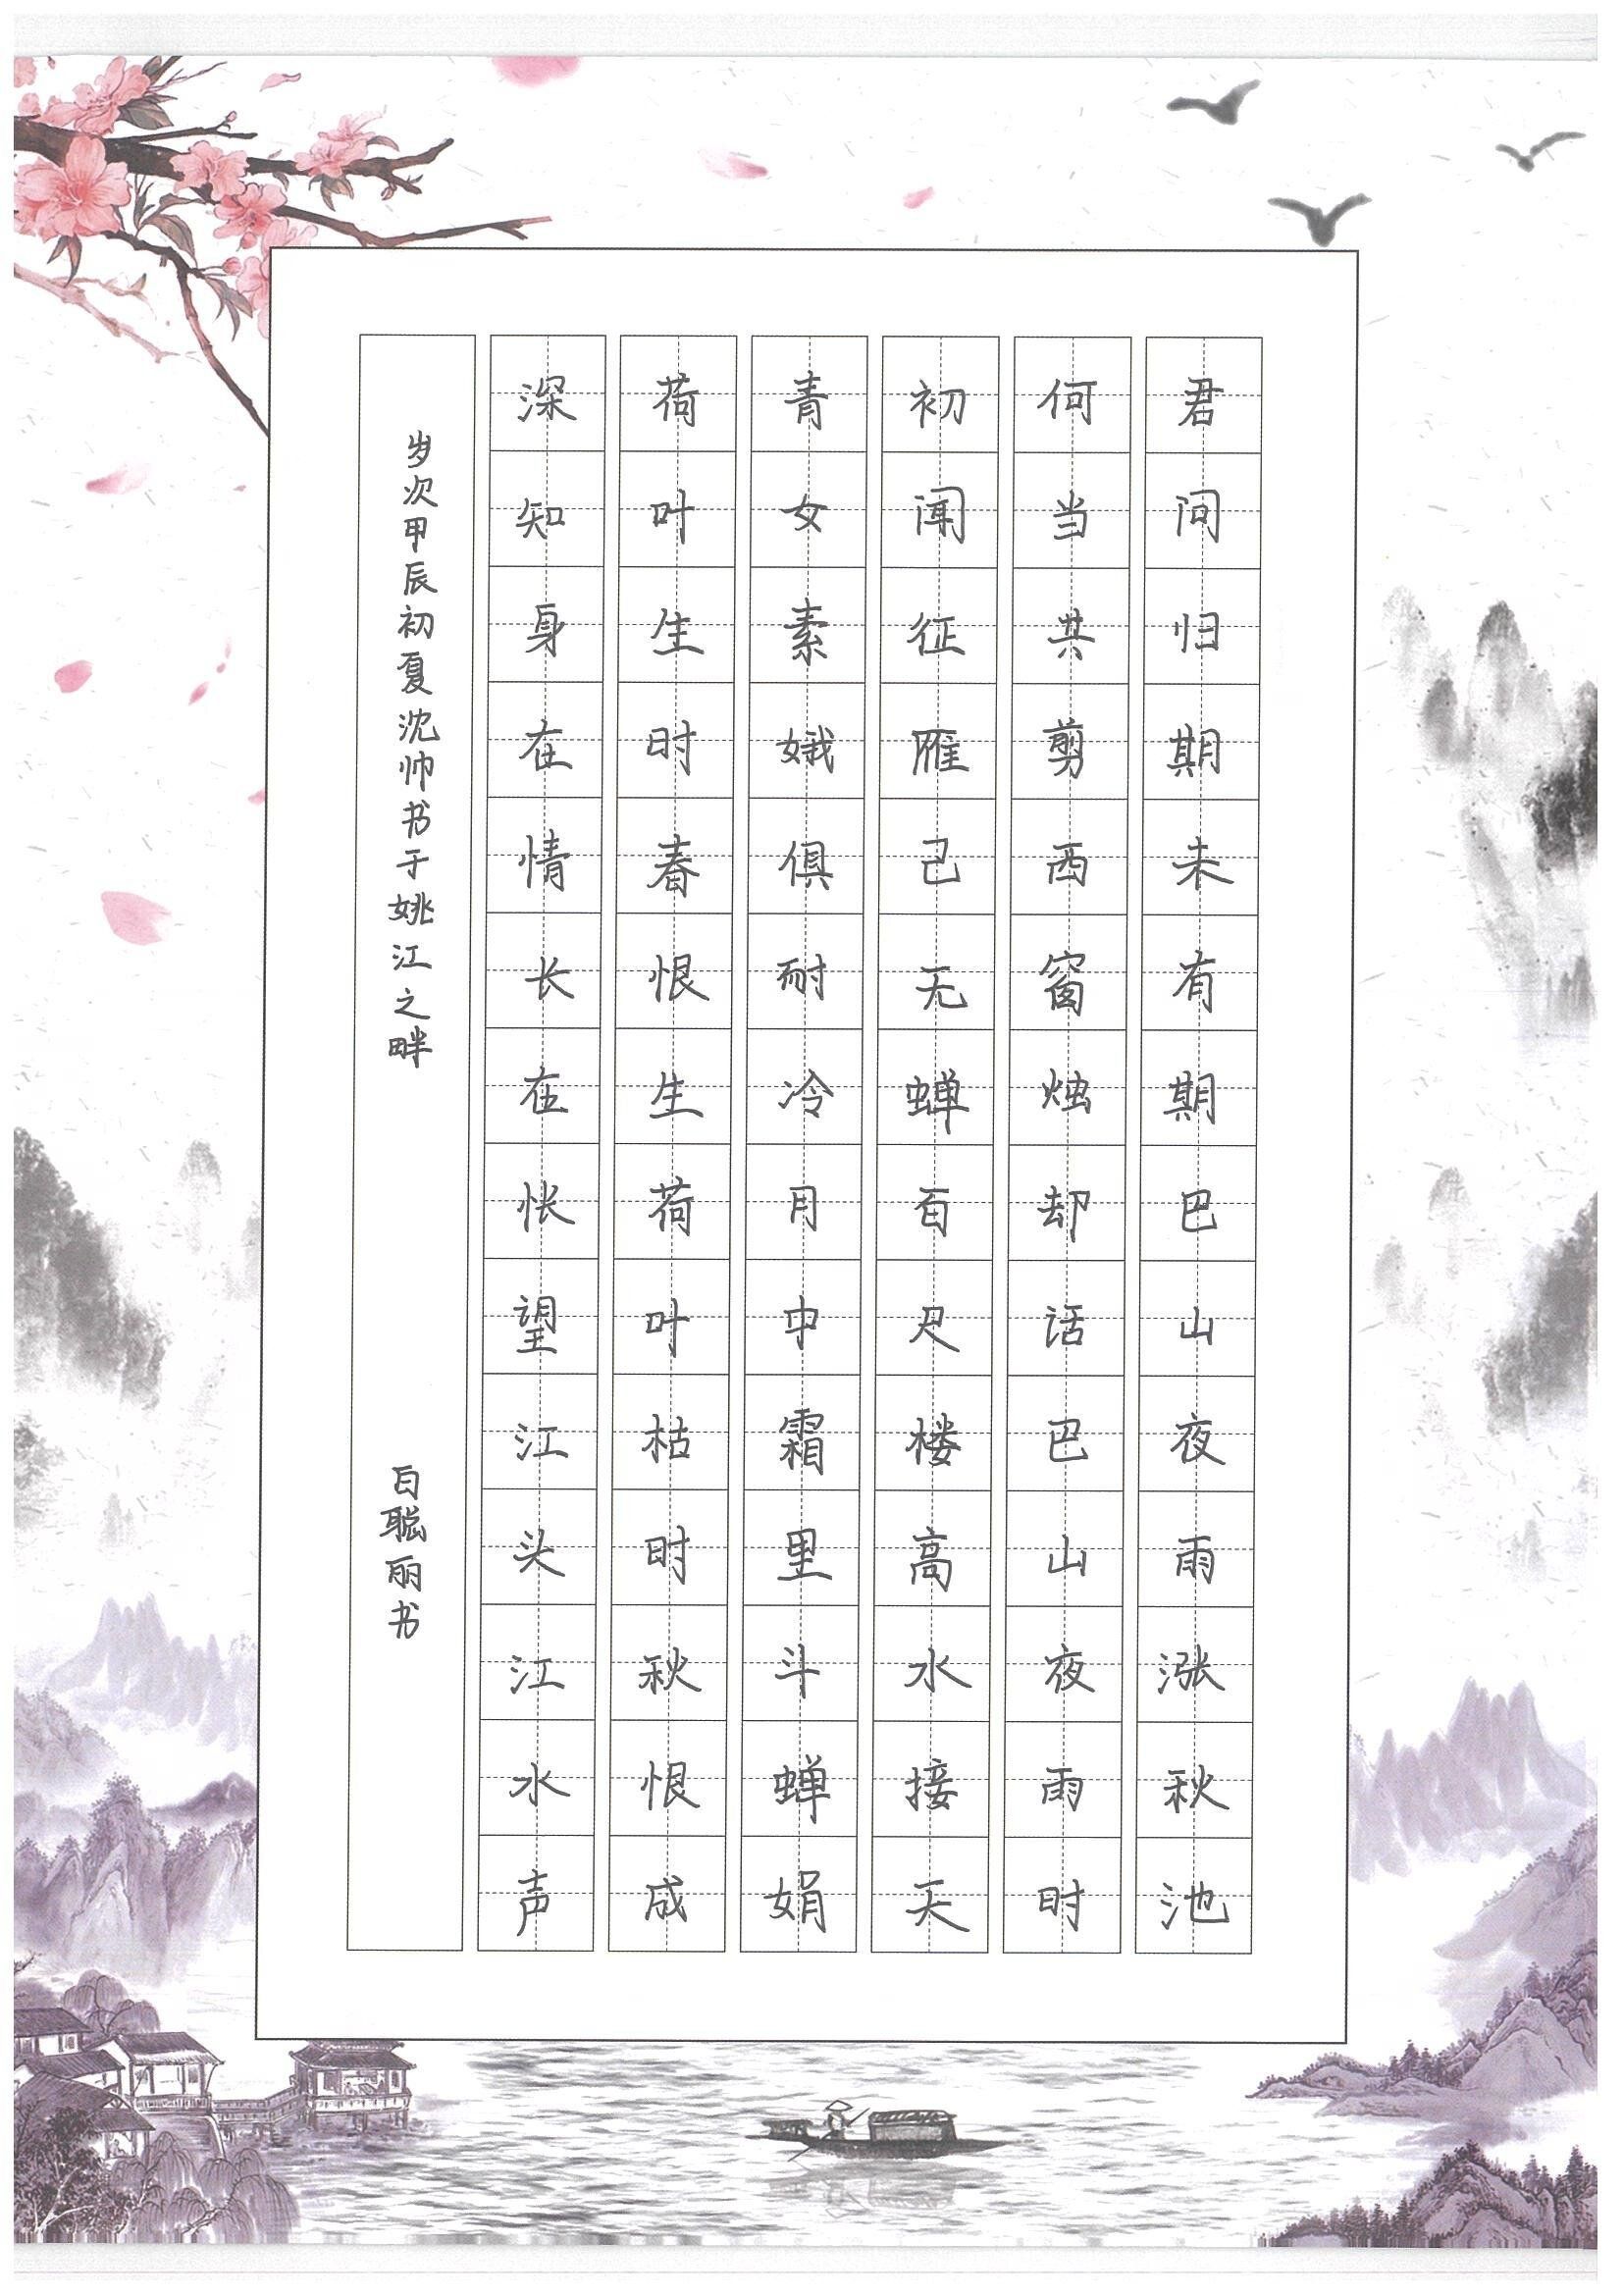 君问归期未有期巴山夜雨涨秋池
何当共剪西窗烛却话巴山夜雨时
初闻征雁已无蝉百尺楼高水接天
青女素娥俱耐冷月中霜里斗蝉娟
荷叶生时春恨生荷叶枯时秋恨成
深知身在情长在怅望江头江水声
岁次甲辰初夏沈帅书于姚江之畔
白聪丽书